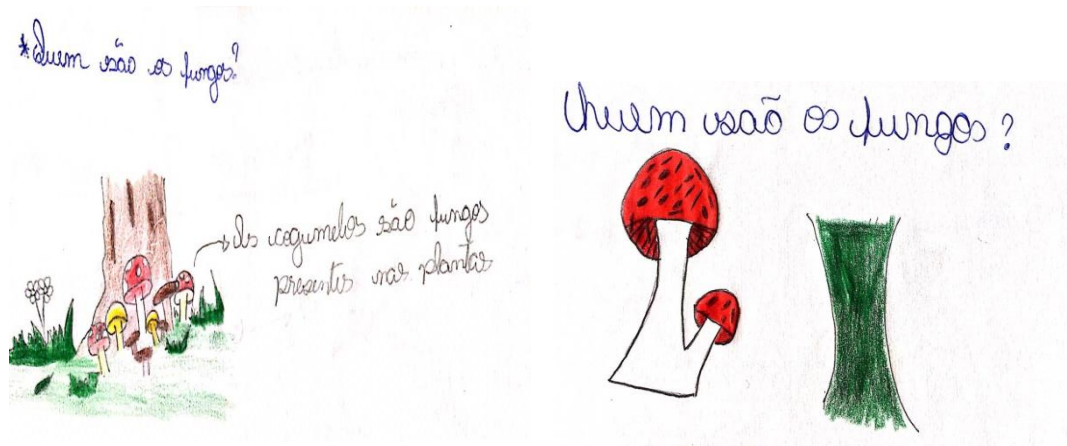 *Quem são os fungos?
Os cogumelos são fungos
presentes nas plantas
Quem são os fungos?